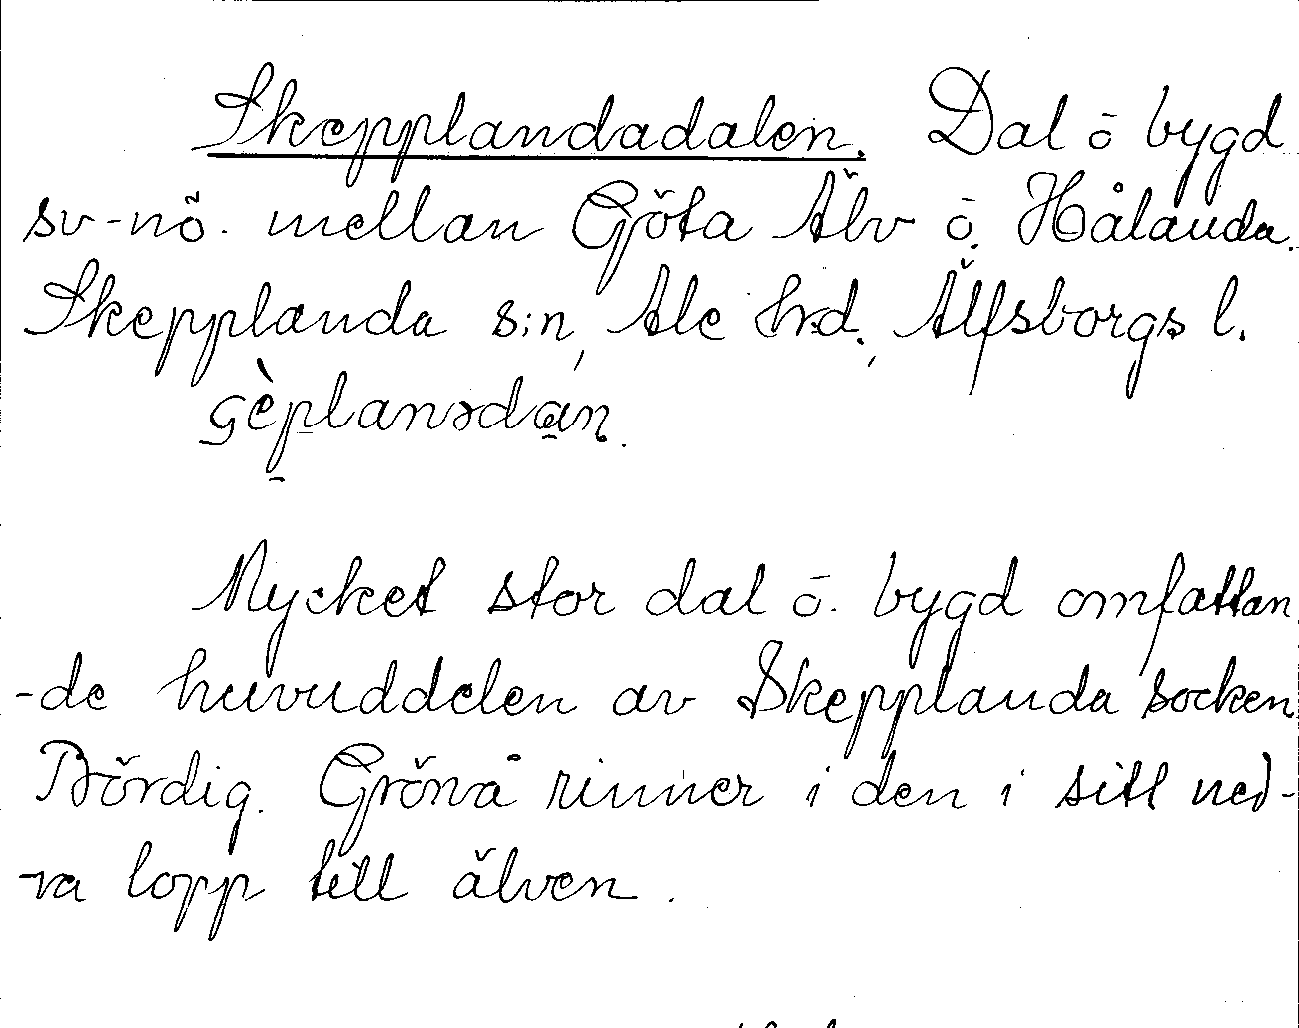 Skepplandadalen. Dal ō bygd
sv-nö. mellan Göta Älv ō. Hålanda.
Skepplanda s:n, Ale hd., Älfsborgs l.
Mycket stor dal ō. bygd omfattan
-de huvuddelen av Skepplanda socken
Bördig. Grönå rinner i den i sitt ned-
ra lopp till älven.